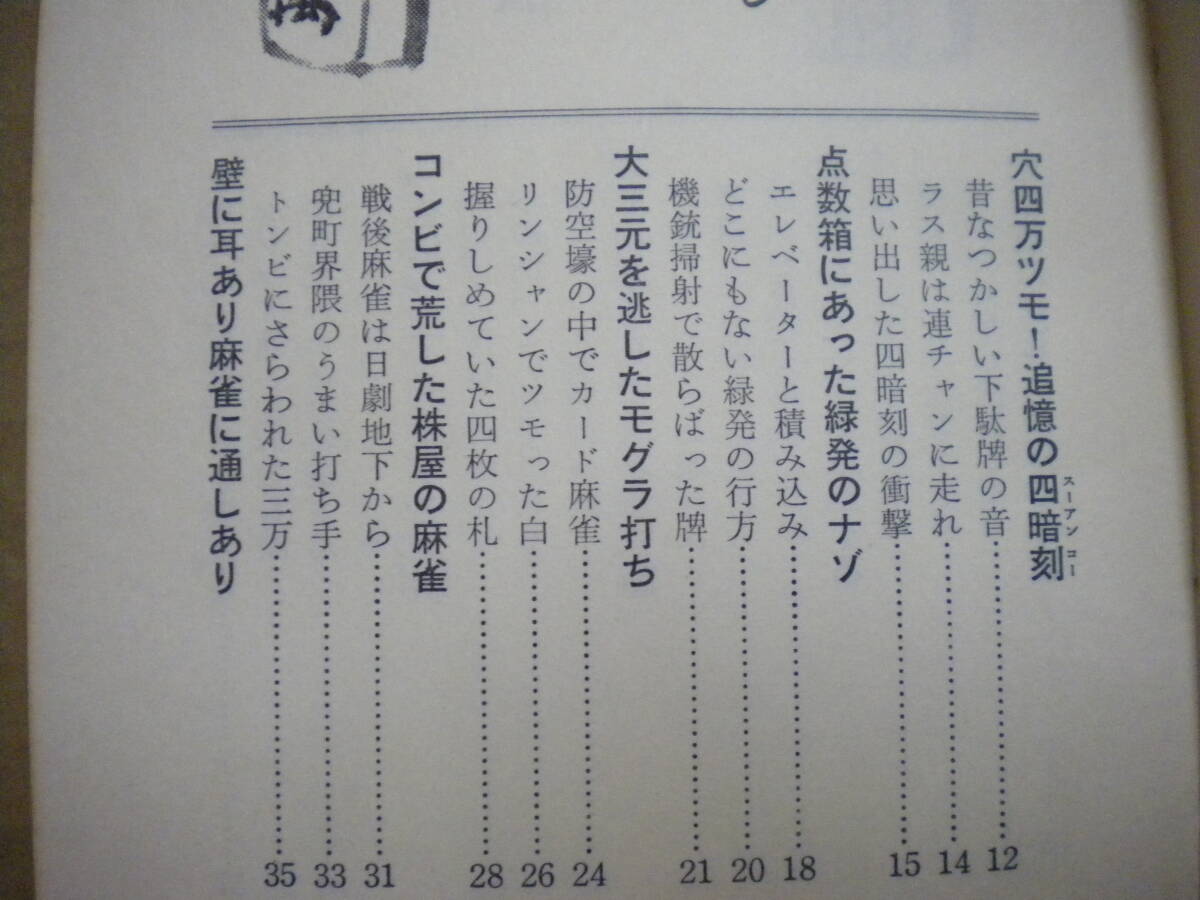 穴四万ツモ！追憶の四暗刻
スーアンコー
昔なつかしい下駄牌の音……12
ラス親は連チャンに走れ……14
思い出した四暗刻の衝撃……15
点数箱にあった緑発のナゾ
エレベーターと積み込み……18
どこにもない緑発の行方……20
機銃掃射で散らばった牌……21
大三元を逃したモグラ打ち
防空壕の中でカード麻雀……24
リンシャンでツモった白……26
握りしめていた四枚の札……28
コンビで荒した株屋の麻雀
戦後麻雀は日劇地下から……31
兜町界隈のうまい打ち手……33
トンビにさらわれた三万……35
壁に耳あり麻雀に通しあり